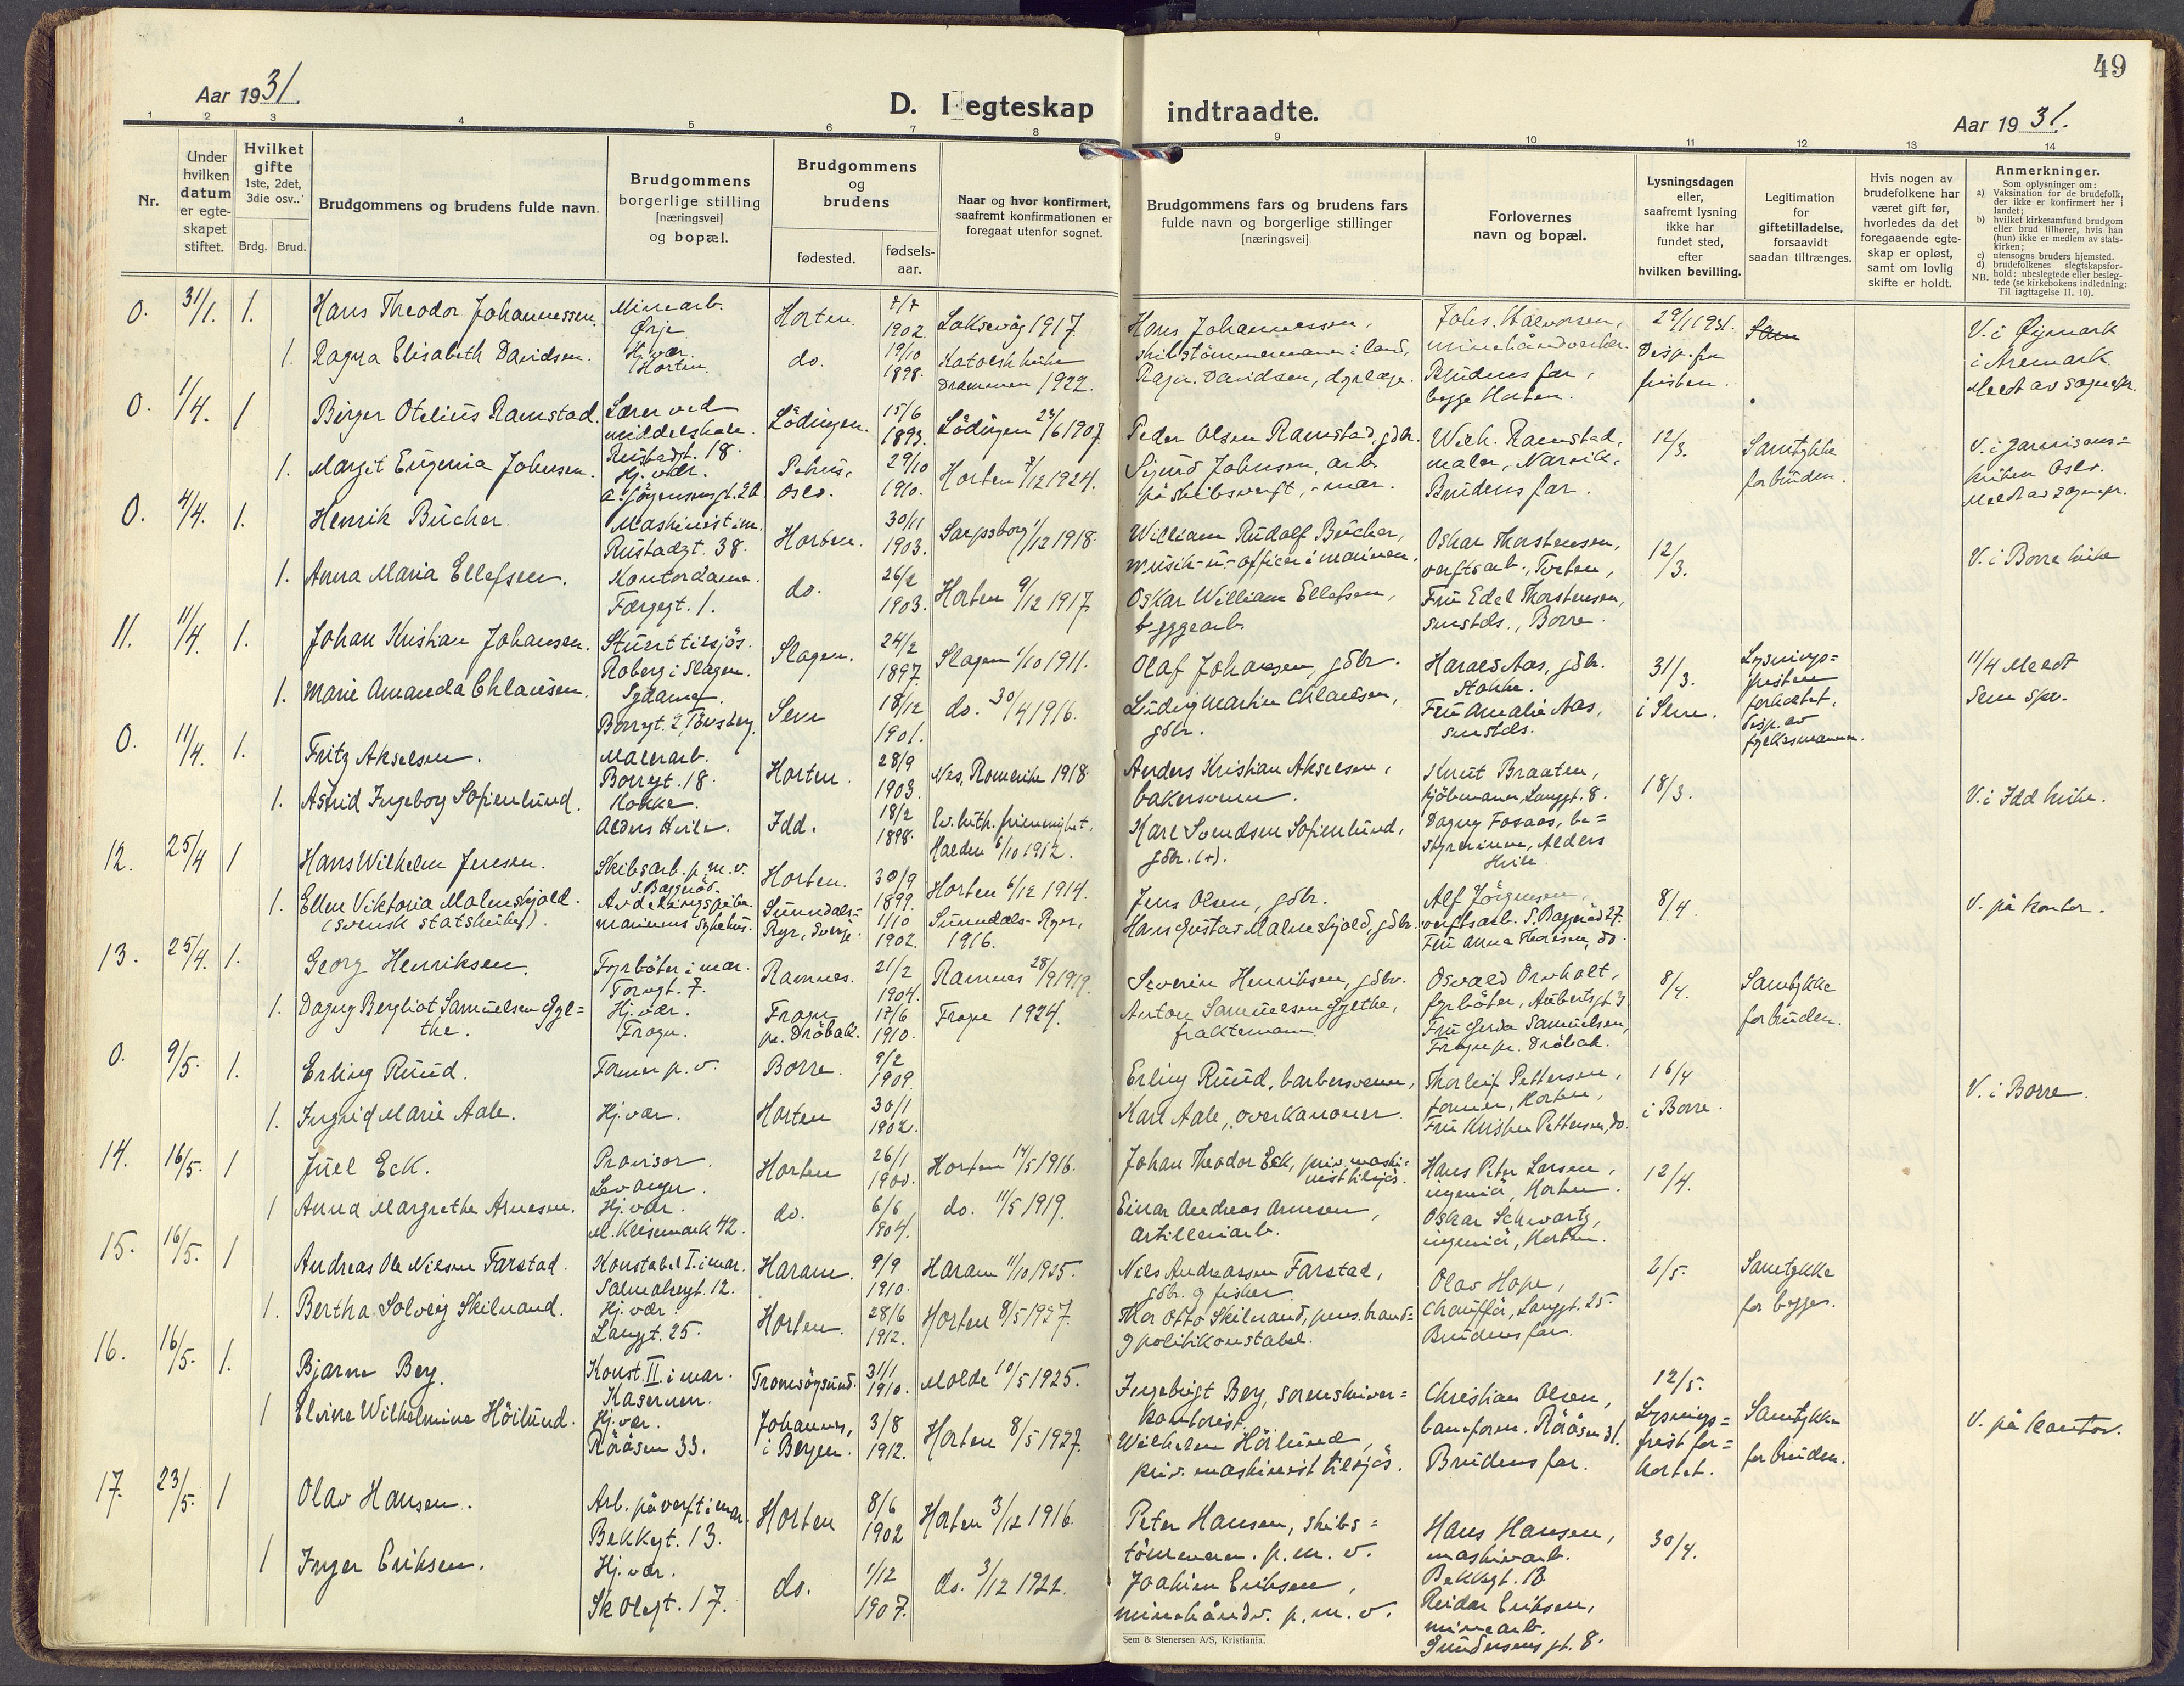 49
Aar 1931.
D. I egteskap indtraadte.
Aar 1931.
1 2 3 4 5 6 7 8 9 10 11 12 13 14
Nr.
Under hvilken datum er egteskapet stiftet.
Hvilket gifte 1ste, 2det, 3die osv..
Brdg. Brud.
Brudgommens og brudens fulde navn.
Brudgommens borgerlige stilling [næringsvei] og bopæl.
Brudgommens og brudens
fødested.
fødsels-aar.
Naar og hvor konfirmert, saafremt konfirmationen er foregaat utenfor sognet.
Brudgommens fars og brudens fars fulde navn og borgerlige stillinger [næringsvei]
Forlovernes navn og bopæl.
Lysningsdagen eller, saafremt lysning ikke har fundet sted, efter hvilken bevilling.
Legitimation for giftetilladelse, forsaavidt saadan tiltrænges.
Hvis nogen av brudefolkene har været gift før, hvorledes da det foregaaende egteskap er opløst, samt om lovlig skifte er holdt.
Anmerkninger.
Som oplysninger om:
a) Vaksination for de brudefolk, der ikke er konfirmert her i landet;
b) hvilket kirkesamfund brudgom eller brud tilhører, hvis han (hun) ikke er medlem av statskirken;
c) utensogns bruders hjemsted.
d) brudefolkenes slegtskapsforhold: ubeslegtede eller beslegtede (se kirkebokens indledning:
NB. Til iagttagelse II. 10).
0. 31/1. 1. Hans Theodor Johannessen. Minearb. Ørje Horten. 7/7 1902. Laksevåg 1917. Hans Johannessen, skibstømmermann i land, Johs. Halvorsen, minehåndverker. 29/1 1931. Disp. for fristen. V. i Øymark i Aremark Meldt av sognepr.
1. Ragna Elisabeth Davidsen. Hj. vær. Horten. do. 19/10 1898. Katolsk kirke Drammen 1922. Ragn. Davidsen, dyrlæge. Brudens far, begge Horten.
0. 1/4. 1 Birger Otelius Ramstad. Lærer ved middelskole. Rustadgt. 18. Lödingen. 15/6 1893. Lödingen 23/6 1907. Peder Olsen Ramstad, gdbr. Wilh. Ramstad, maler, Narvik. 12/3. Samtykke for bruden. V. i Garnisons= kirken Oslo. Meldt av sognepr.
1. Margit Eugenia Johnsen. Hj. vær. Petrus, Oslo. 29/10 1910. Horten 7/12 1924. Sigurd Johnsen, arb. på skibsverft, - mar. Brudens far.
0. 4/4. 1. Henrik Bücher. Maskinist i m. Rustadgt. 38. Horten. 30/11 1903. Sarpsborg 1/12 1918. William Rudolf Bücher, musik-u-officer i marinen. Oskar Thorstensen, verftsarb., Torten, 12/3. V. i Borre kirke
1. Anna Maria Ellefsen. Kontordame. Færgegt. 1. do. 26/2 1903. Horten 9/12 1917. Oskar William Ellefsen, byggearb. Fru Edel Thorstensen, smstds., Borre.
11. 11/4. 1. Johan Kristian Johansen. Stuert tilsjös. Roberg i Slagen. Slagen. 24/2 1897. Slagen 1/10 1911. Olaf Johansen, gdbr. Harald Aas, gdbr. Stokke. 31/3. i Slere. Lysnings= fristen forkortet, disp. av fylkesmannen. 11/4 Meldt Sem spr.
1. Marie Amanda Chlausen. Sydame. Borregt. 2, Tönsberg. Sem 18/12 1901. do. 30/4 1916. Ludvig Martin Chlausen, gdbr. Fru Amalie Aas, smstds.
0. 11/4. 1. Fritz Akselsen. Malerarb. Borregt. 18. Horten. 28/9 1903. Nes, Romerike 1918 Anders Kristian Akselsen, bakersvenn. Knut Braaten, kjöbmann, Langgt. 8. 18/3. V. i Idd kirke.
1. Astrid Ingeborg Sofienlund. Kokke. Alders Hvile. Idd. 18/2 1898. Ev. luth. frimenighet. Halden 6/10 1912. Karl Svendsen Sofienlund, gdbr. (+). Dagny Fosaas, be= styrerinne, Alders Hvile.
12. 25/4 1 Hans Wilhelm Jensen. Skibsarb. p. m. v. S. Baggerød. Horten. 30/9 1899. Horten 6/12 1914. Jens Olsen, gdbr. Alf Jörgensen, verftsarb. S. Baggerød 27. 8/4. V. på kontor.
1. Ellen Viktoria Malmskjold. (svensk statskirke). Avdelingspike marinens sykehus. Sunndals= Ryr, Sverje. 1/10 1902. Sunndals-Ryr, 1916. Hans Gustav Malmskjold, gdbr. Fru Anna Thoresen, do.
13. 25/4. 1. Georg Henriksen. Fyrböter i mar. Torvgt. 7. Ramnes. 21/2 1904. Ramnes 28/9 1919. Severin Henriksen, gdbr. Osvald Ornholt, fyrböter, Aubertsgt 3. 8/4. Samtykke for bruden.
1. Dagny Bergliot Samuelsen Gyl= the. Hj. vær. Frogn. Frogn pr. Dröbak. 17/6 1910. Frogn 1924. Anton Samuelsen Gylthe, fraktemann. Fru Gerda Samuelsen, Frogn pr. Dröbak.
0. 9/5. 1. Erling Ruud. Former p. v. Borre. 9/2 1909. Erling Ruud, barbersvenn, Thorleif Pettersen, former, Horten, 16/4 i Borre. V. i Borre.
1. Ingrid Marie Aale. Hj. vær. Horten 30/1 1902. Karl Aale, overkanoner. Fru Kristine Pettersen, do.
14. 16/5. 1 Juel Eck. Provisor. Levanger. Horten 26/1 1900. Horten 14/5 1916. Johan Theodor Eck, priv. maski= nist tilsjös. Hans Peter Larsen, ingeniör, Horten. 12/4.
1 Anna Margrethe Arnesen. Hj. vær. M. Keisemark 42. do. 6/6 1904. do. 11/5 1919. Einar Andreas Arnesen, artilleriarb. Oskar Schwartz, ingeniör, Horten.
15. 16/5. 1 Andreas Ole Nilsen Farstad. Konstabel I. i mar. Horten. Haram. 9/9 1910. Haram 11/10 1925. Nils Andreassen Farstad, gdbr. og fisker. Olav Hope, chaufför, Langgt. 25. 2/5. Samtykke for begge.
1. Bertha Solveig Skilnand. Hj. vær. Langgt. 25. Horten. 28/6 1912. Horten 8/5 1927. Thor Otto Skilnand, pens. brand= og politikonstabel. Brudens far.
16. 16/5. 1. Bjarne Berg. Konst. II. i mar. Kasernen. Tromsöysund. 31/1 1910. Molde 10/5 1925. Ingebrigt Berg, sorenskriver= kontorist. Christian Olsen, baneform. Råråsen 31. 12/5. Lysnings= frist for= kortet. Samtykke for bruden. V. på kontor.
1 Elvine Wilhelmine Höilund. Hj. vær. Råråsen 33. Johannes, i Bergen. 3/8 1912. Horten 8/5 1927. Wilhelm Höilund, priv. maskinist tilsjös. Brudens far.
17. 23/5. 1 Olav Hansen. Arb. på verft i mar. Bekkegt. 13. Horten 8/6 1902 Horten 3/12 1916. Peter Hansen, skibs= tömmerm. p. m. v. Hans Hansen, maskinarb. Bekkegt. 13 30/4.
1 Inger Eriksen. Hj. vær. Skolegt. 17. do. 1/12 1907. do. 3/12 1922. Joakim Eriksen, minehåndv. p. m. v. Reidar Eriksen, minearb. Gundersens gt. 8.
Sem & Stenersen A/S, Kristiania.